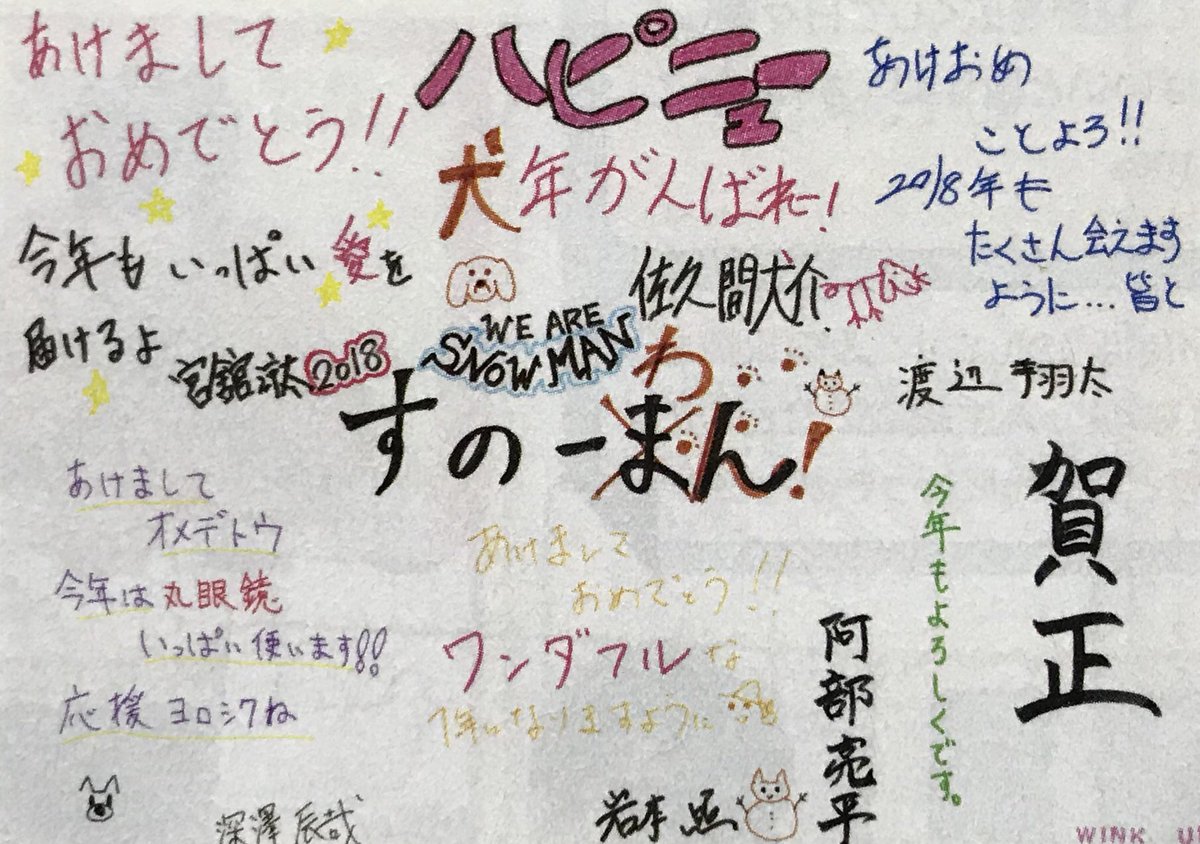 あけまして
おめでとう!!
今年もいっぱい愛を
届けるよ
宮舘涼太 2018
ハピニュー
犬年がんばれー!
佐久間大介
WE ARE
SNOW MAN
すのーまん!
わ
あけおめ
ことよろ!!
2018年も
たくさん会えます
ように…皆と
渡辺翔太
あけまして
オメデトウ
今年は丸眼鏡
いっぱい使います!!
応援ヨロシクね
深澤辰哉
あけまして
おめでとう!!
ワンダフルな
1年になりますように
岩本照
賀正
今年もよろしくです。
阿部亮平
WINK U